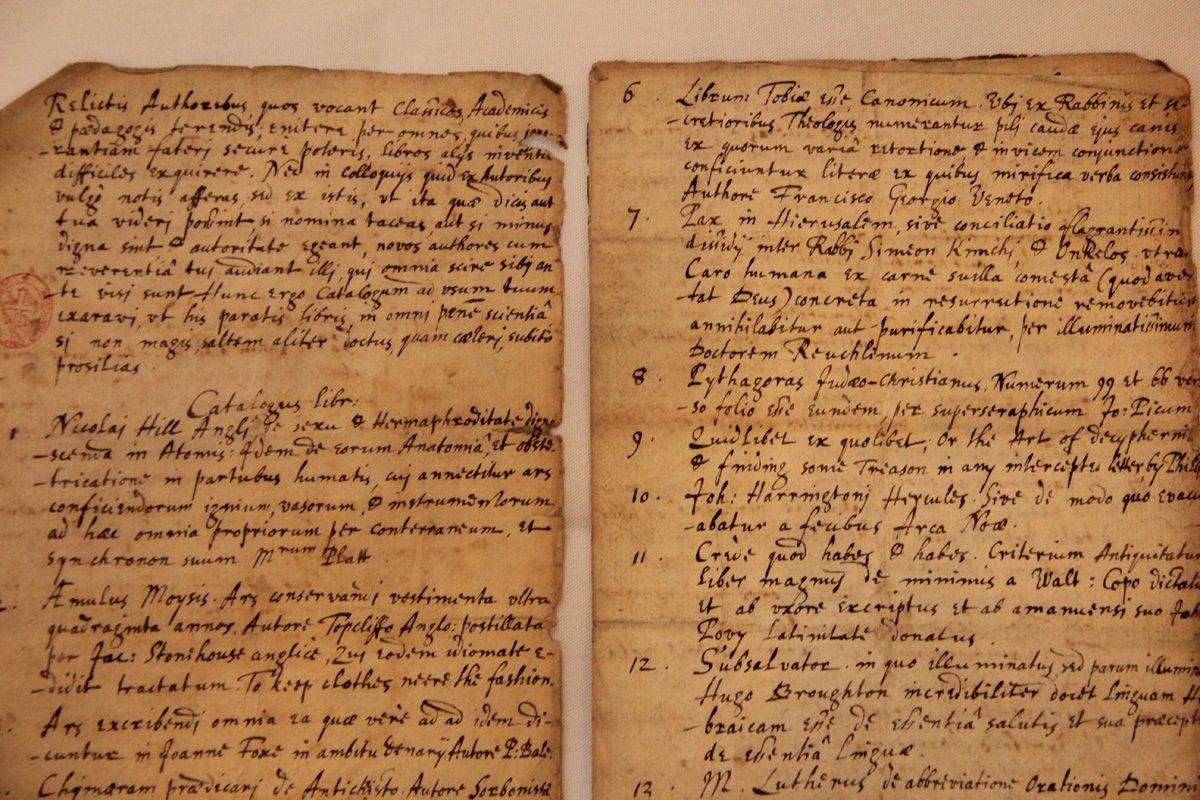 Relictis Authoribus quos vocant Classicos, Academicis
& pædagogis terendis; enitere per omnes, quibus
-rantiam fateri secure poteris, libros alijs inventu
difficiles exquirere. Nec in colloquijs quid ex Autoribus
vulgò notis afferas, sed ex istis; vt ita quæ dicis aut
tua videri possint, si nomina taceas, aut si minus
digna sint & autoritate egeant, novos authores cum
reverentiâ tuj audiant illj quj omnia scire sibj an
-te visj sunt. Hunc ergo Catalogum ad vsum tuum
exaravj, vt his paratis libris, in omnj penè scientiâ
sj non magis, saltem aliter doctus, quam cæterj, subitò
prosilias.
Catalogus libr:
1 Nicolaj Hill Anglj de sexu & Hermaphroditate digno-
-scenda in Atomis: Idem de eorum Anatomiâ, et obste-
-tricatione in partubus humatis, cuj annectitur ars
conficiendorum ignium, vasorum, & instrumentorum
ad hæc omnia propriorum per conterraneum, et
synchronon suum Mrum Platt
2. Æmulus Moysis. Ars conservandj vestimenta vltra
quadraginta annos. Autore Topcliffo Anglo: postillata
per Jac: Stonehouse anglicè, Quj eodem idiomate e-
-didit tractatum. To keep clothes neere the fashion.
Ars exscribendj omnia ea quæ verè ad ad idem di-
-cuntur in Joanne Foxe in ambitu denarij Autore P: Bale.
Chymæram prædicarj de Antichristo. Autore Sorbonistâ
6. Librum Tobiæ esse Canonicum. Vbj ex Rabbinis et se-
-cretioribus Theologis numerantur pilj caudæ ejus canis
ex quorum variâ retortione & invicem conjunctione
conficiuntur literæ ex quibus mirifica verba consistunt,
Authore Francisco Georgio Veneto.
7. Pax in Hierusalem, sive conciliatio flagrantissimi
dissidij inter Rabbj Simeon Kimchj, & Onkelos, vtrum
Caro humana ex carne suilla comestâ (quod aver
-tat Deus) concreta in resurrectione removebitur
annihilabitur aut purificabitur, per illuminatissimum
Doctorem Reuchlinum.
8. Pythagoras Judæo-Christianus, Numerum 99 et 66 ver
-so folio esse eundem, per superseraphicum Jo: Picum
9. Quidlibet ex quolibet; Or the Art of decypherin
& finding some Treason in any intercepted letter by Phil
10. Joh: Harringtonj Hercules. Sive de modo quo evacu
-abatur a fecibus Arca Noæ.
11. Crede quod habes & habes. Criterium Antiquitatum
Liber magnus de minimis a Walt: Copo dictat
et ab vxore exscriptus et ab amanuensi suo
Povy Latinitate donatus.
12. Subsalvator. in quo illuminatus, sed parum illumin
Hugo Broughton incredibiliter docet linguam H
-braicam esse de essentiâ salutis et sua præcept
de essentiâ linguæ.
13. M. Lutherus de abbreviatione Orationis Domin